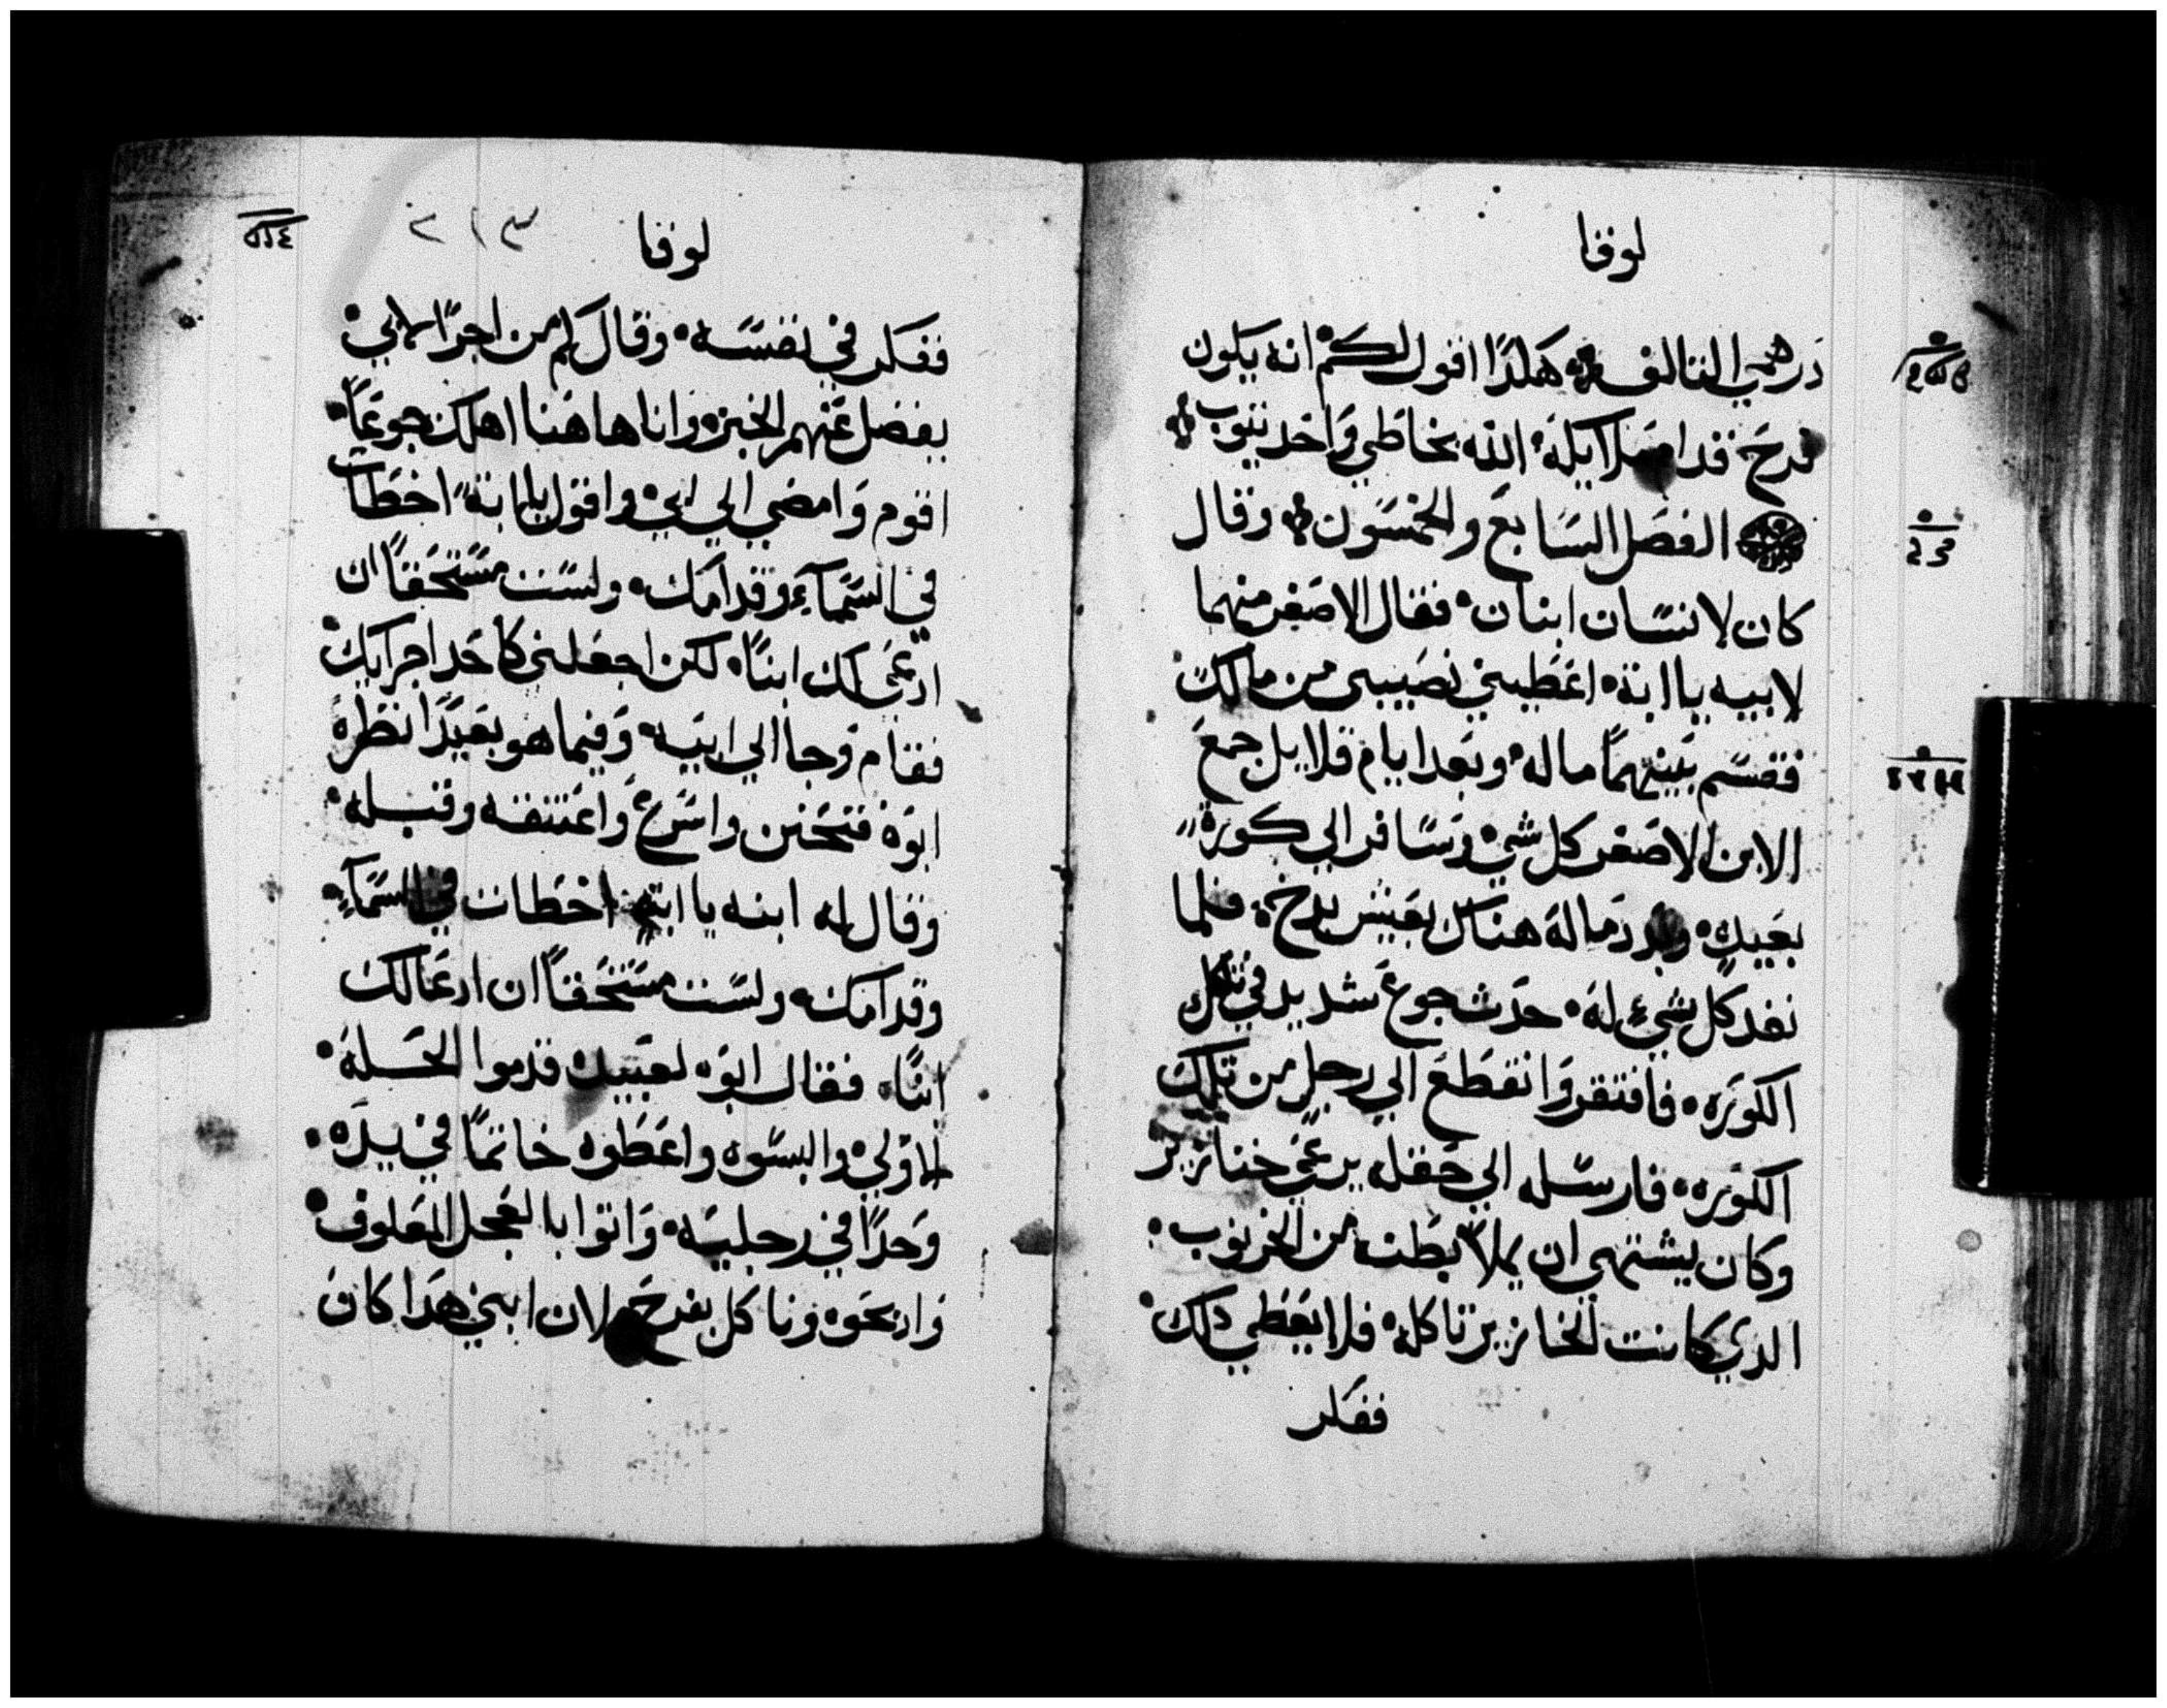 لوقا
درهمي التالف هكدا اقول لكم انه يكون
فرح قدام ملايكة الله بخاطي واحد يتوب
الفصل السابع والخمسون وقال
كان لانسان ابنان فقال الاصغر منهما
لابيه يا ابة اعطيني نصيبي من مالك
فقسم بينهما ماله وبعد ايام قلايل جمع
الابن الاصغر كل شي وسافر الي كورة
بعيدة وبدد ماله هناك بعيش بدخ فلما
نفد كل شيء له حدث جوع شديد في تلك
الكورة فافتقر وانقطع الي رجل من تلك
الكورة فارسله الي حقله يرعي خنازير
وكان يشتهي ان يملا بطنه من الخرنوب
الدي كانت الخنازير تاكله فلا يعطي دلك
ففكر
لوقا
٢١٣
ففكر في نفسه وقال كم من اجرا لابي
يفضل عنهم الخبز وانا هاهنا اهلك جوعاً
اقوم وامضي الي ابي واقول يا ابة اخطات
في السماء وقدامك ولست مستحقاً ان
ادعي لك ابناً لكن اجعلني كاحد اجرايك
فقام وجا الي ابيه وفيما هو بعيداً نظره
ابوه فتحنن واسرع واعتنقه وقبله
وقال له ابنه يا ابتي اخطات في السماء
وقدامك ولست مستحقاً ان ادعا لك
ابناً فقال ابوه لعبيده قدموا الحله
الاولي والبسوه واعطوه خاتماً في يده
وحداً في رجليه واتوا بالعجل المعلوف
وادبحوه وناكل بفرح لان ابني هدا كان